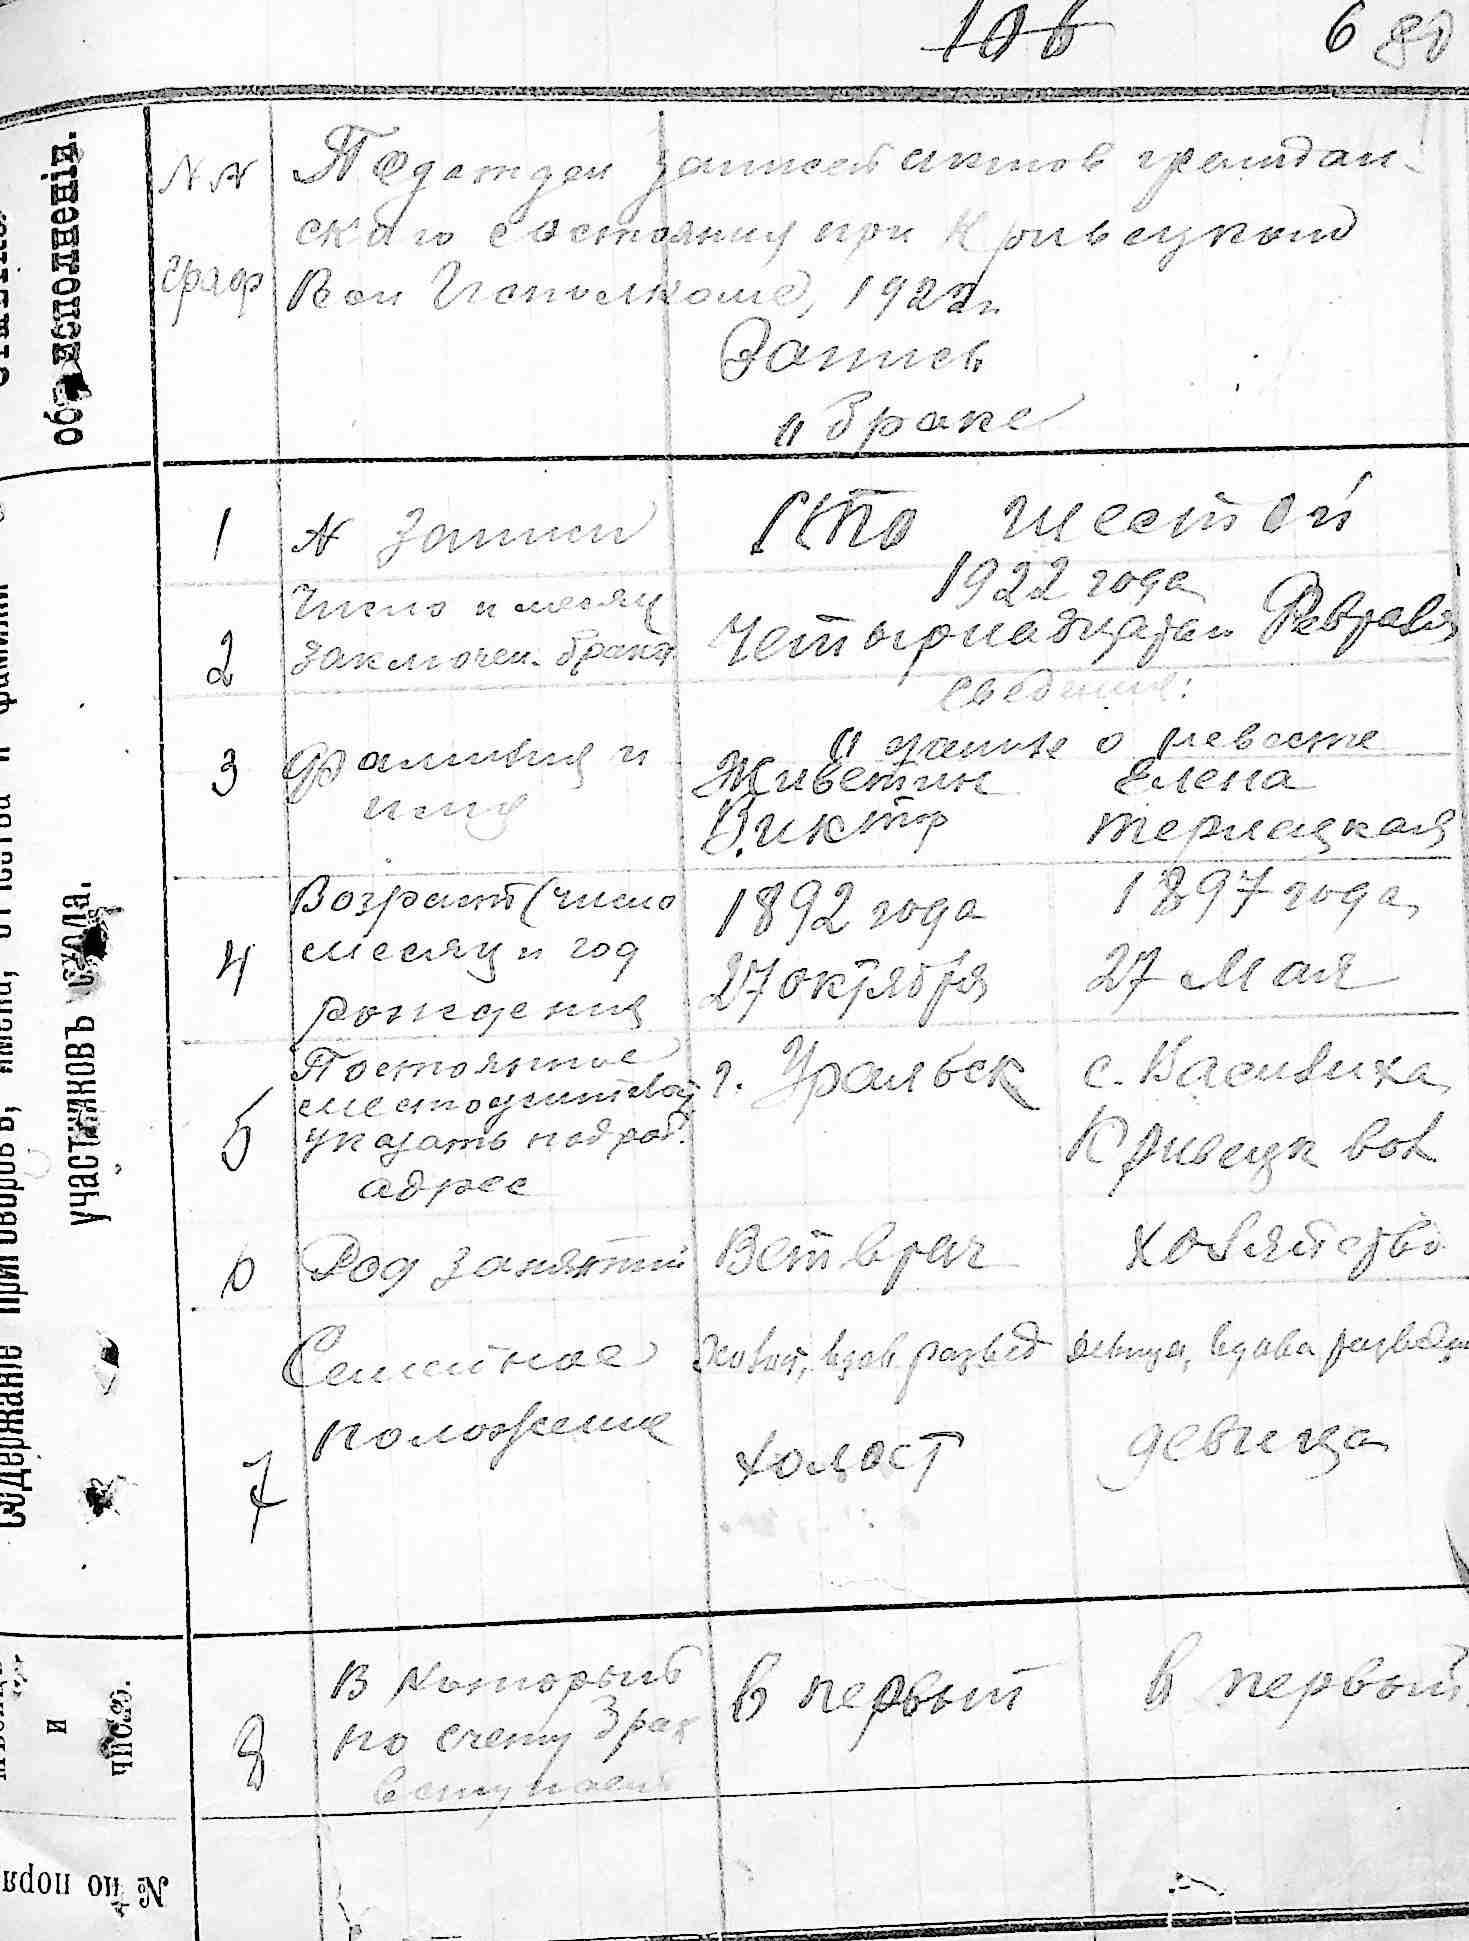 106 6 80
об исполненіи.
участниковъ схода.
Содержаніе приговоровъ, имена, отчества и фамиліи
и
число.
№ по поря
N N
граф
Подотдел записей актов граждан-
ского состояния при Кривецком
Вол Исполкоме, 1922 г.
Запись
о браке
1 N записи Сто шестой
1922 года
2 Число и месяц
заключен. брака Четырнадцатаг Февраля
сведения:
о женихе о невесте
3 Фамилия и
имя Живетин Елена
Виктор Терлецкая
4 Возраст (число
месяц и год
рождения 1892 года 1897 года
27 октября 27 Мая
5 Постоянное
местожительст
указать подроб.
адрес г. Уральск с. Василиха
Кривецк вол
6 Род занятий Ветврач хозяйство
7 Семейное
положение Холост, вдов развед девица, вдова разведен
холост девица
8 В который
по счету брак
вступает в первый в первый